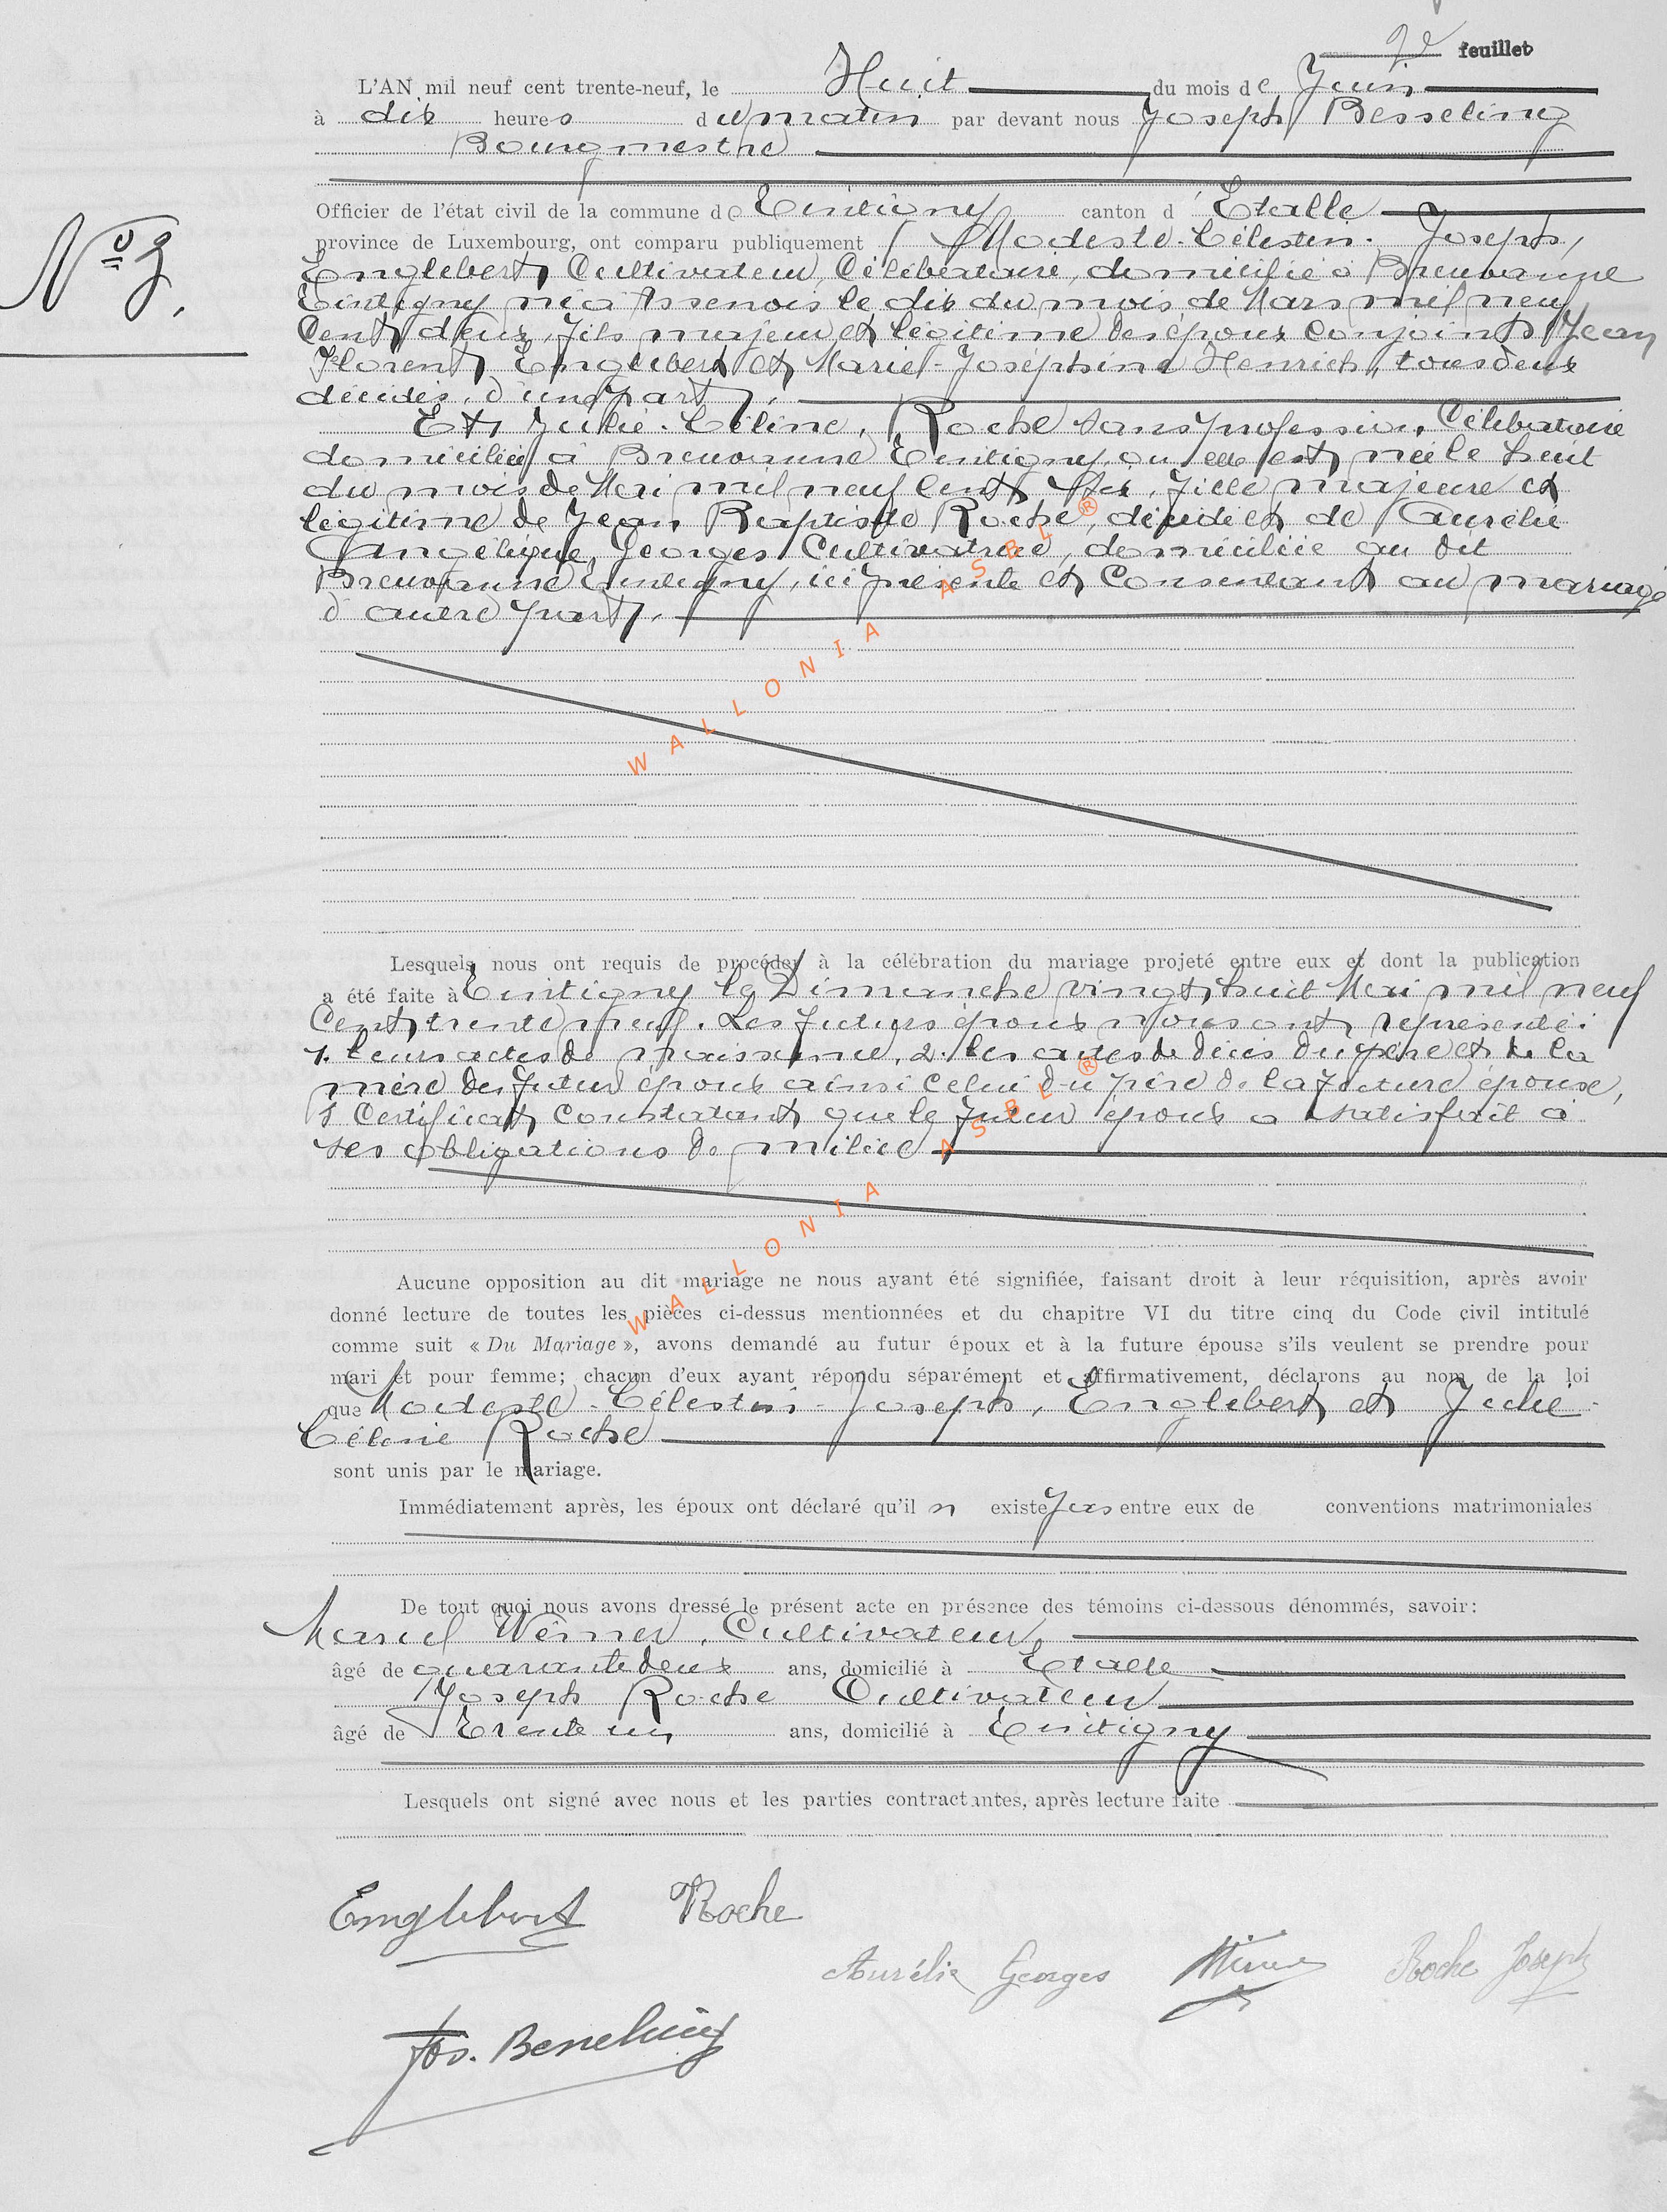 2e feuillet
L'AN mil neuf cent trente-neuf, le Huit du mois de Juin
à dix heures du matin par devant nous Joseph Besseling
Bourgmestre
Officier de l'état civil de la commune de Tintigny canton d'Etalle
province de Luxembourg, ont comparu publiquement Modeste-Célestin-Joseph,
N°
Englebert, Cultivateur, Célibataire, domicilié à Breuvanne
Tintigny né à Assenois le dix du mois de Mars mil neuf
Cent deux, fils majeur et légitime des époux conjoints Jean
Florent Englebert et Marie-Joséphine Henrich, tous deux
décédés, d'une part,
Et, Julie-Céline, Roche sans profession, Célibataire
domiciliée à Breuvanne Tintigny où elle est née le huit
du mois de Mai mil neuf Cent, fille majeure et
légitime de Jean Baptiste Roche, décédé et de Aurélie
Angélique, Georges Cultivatrice, domiciliée au dit
Breuvanne Tintigny, ici présente et Consentant au mariage
d'autre part,
Lesquels nous ont requis de procéder à la célébration du mariage projeté entre eux et dont la publication
a été faite à Tintigny le Dimanche vingt huit Mai mil neuf
Cent trente neuf. Les futurs époux nous ont représenté:
1. leurs actes de naissance, 2. les actes de décès du père et de la
mère du futur époux ainsi celui du père de la future épouse,
Certificat Constatant que le futur époux a satisfait à
ses obligations de milice
Aucune opposition au dit mariage ne nous ayant été signifiée, faisant droit à leur réquisition, après avoir
donné lecture de toutes les pièces ci-dessus mentionnées et du chapitre VI du titre cinq du Code civil intitulé
comme suit « Du Mariage », avons demandé au futur époux et à la future épouse s'ils veulent se prendre pour
mari et pour femme; chacun d'eux ayant répondu séparément et affirmativement, déclarons au nom de la loi
que Modeste-Célestin-Joseph, Englebert et Julie-
Céline Roche
sont unis par le mariage.
Immédiatement après, les époux ont déclaré qu'il n existe pas entre eux de conventions matrimoniales
De tout quoi nous avons dressé le présent acte en présence des témoins ci-dessous dénommés, savoir:
Marcel Wérner, Cultivateur,
âgé de quarante deux ans, domicilié à Etalle
Joseph Roche Cultivateur
âgé de Trente un ans, domicilié à Tintigny
Lesquels ont signé avec nous et les parties contractantes, après lecture faite
Englebert Roche
Aurélie Georges Roche Joseph
Jos. Besseling
WALLONIA ASBL ®
WALLONIA ASBL ®